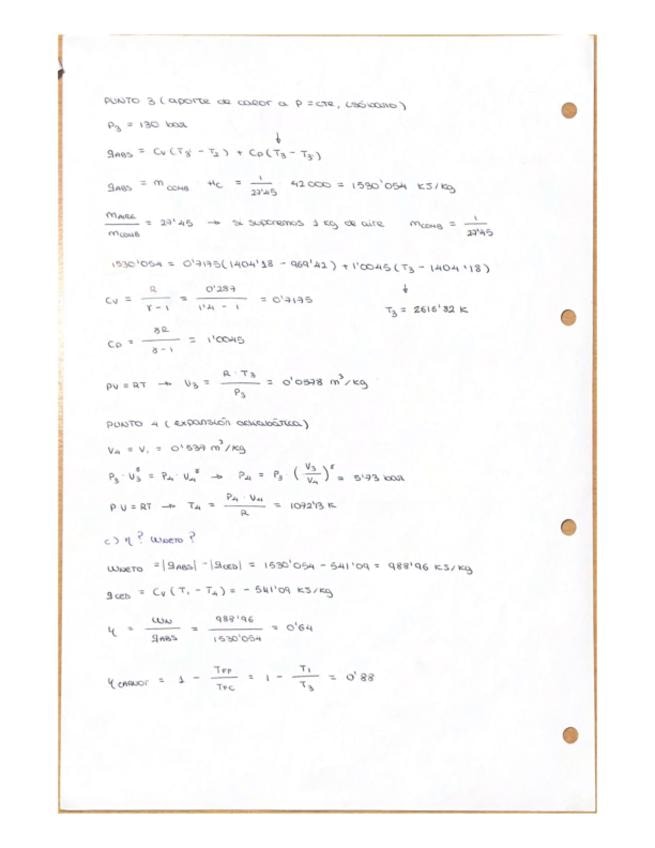 PUNTO 3 (aporte de calor a P = cte, (sábado)
P₃ = 130 bar
↓
q_ABS = Cv (T₃' - T₂) + Cp (T₃ - T₃')
q_ABS = m_COMB · Hc = 1/27'45 · 42000 = 1530'054 KJ/kg
m_AIRE/m_COMB = 27'45 → si suponemos 1 kg de aire m_COMB = 1/27'45
1530'054 = 0'7175(1404'18 - 969'42) + 1'0045(T₃ - 1404'18)
↓
T₃ = 2616'32 K
Cv = R/(γ-1) = 0'287/(1'4 - 1) = 0'7175
Cp = γR/(γ-1) = 1'0045
PV = RT → V₃ = R · T₃/P₃ = 0'0578 m³/kg
PUNTO 4 (expansión adiabática)
V₄ = V₁ = 0'537 m³/kg
P₃ · V₃^γ = P₄ · V₄^γ → P₄ = P₃ (V₃/V₄)^γ = 5'73 bar
PV = RT → T₄ = P₄ · V₄/R = 1072'13 K
c) η? Wneto?
W_NETO = |q_ABS| - |q_CED| = 1530'054 - 541'09 = 988'96 KJ/kg
q_CED = Cv (T₁ - T₄) = - 541'09 KJ/kg
η = W_N/q_ABS = 988'96/1530'054 = 0'64
η_CARNOT = 1 - T_FF/T_FC = 1 - T₁/T₃ = 0'88